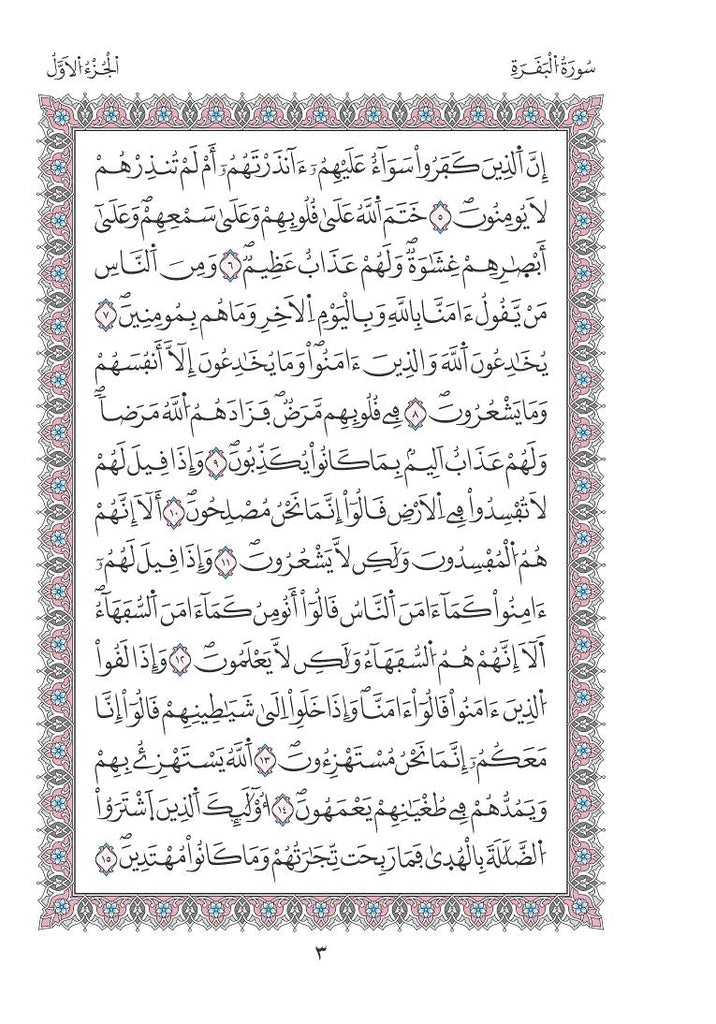 سُورَةُ الْبَقَرَةِ
الْجُزْءُ الْأَوَّلُ
إِنَّ اَ۬لذِينَ كَفَرُواْ سَوَآءٌ عَلَيْهِمُۥٓ ءَآنذَرْتَهُمُۥٓ أَمْ لَمْ تُنذِرْهُمْ
لَا يُومِنُونَۖ ٥ خَتَمَ اَ۬للَّهُ عَلَىٰ قُلُوبِهِمْ وَعَلَىٰ سَمْعِهِمْۖ وَعَلَىٰٓ
أَبْصٰ۪رِهِمْ غِشَٰوَةٞۖ وَلَهُمْ عَذَابٌ عَظِيمٞۖ ٦ وَمِنَ اَ۬لنَّاسِ
مَنْ يَّقُولُ ءَامَنَّا بِاللَّهِ وَبِالْيَوْمِ اِ۬لَاخِرِ وَمَا هُم بِمُومِنِينَۖ ٧
يُخَٰدِعُونَ اَ۬للَّهَ وَالذِينَ ءَامَنُواْۖ وَمَا يُخَٰدِعُونَ إِلَّآ أَنفُسَهُمْ
وَمَا يَشْعُرُونَۖ ٨ فِے قُلُوبِهِم مَّرَضٞ فَزَادَهُمُ اُ۬للَّهُ مَرَضاٗۖ
وَلَهُمْ عَذَابٌ اَلِيمُۢ بِمَا كَانُواْ يُكَذِّبُونَۖ ٩ وَإِذَا قِيلَ لَهُمْ
لَا تُفْسِدُواْ فِے اِ۬لَارْضِ قَالُوٓاْ إِنَّمَا نَحْنُ مُصْلِحُونَۖ ١٠ أَلَآ إِنَّهُمْ
هُمُ اُ۬لْمُفْسِدُونَ وَلَٰكِن لَّا يَشْعُرُونَۖ ١١ وَإِذَا قِيلَ لَهُمُۥٓ
ءَامِنُواْ كَمَآ ءَامَنَ اَ۬لنَّاسُ قَالُوٓاْ أَنُومِنُ كَمَآ ءَامَنَ اَ۬لسُّفَهَآءُۖ
اَ۬لَآ إِنَّهُمْ هُمُ اُ۬لسُّفَهَآءُ وَلَٰكِن لَّا يَعْلَمُونَۖ ١٢ وَإِذَا لَقُواْ
اُ۬لذِينَ ءَامَنُواْ قَالُوٓاْ ءَامَنَّاۖ وَإِذَا خَلَوِاْ اِلَىٰ شَيَٰطِينِهِمْ قَالُوٓاْ إِنَّا
مَعَكُمُۥٓ إِنَّمَا نَحْنُ مُسْتَهْزِءُونَۖ ١٣ اَ۬للَّهُ يَسْتَهْزِئُ بِهِمْ
وَيَمُدُّهُمْ فِے طُغْيَٰنِهِمْ يَعْمَهُونَۖ ١٤ أُوْلَٰٓئِكَ اَ۬لذِينَ اَ۪شْتَرَوُاْ
اُ۬لضَّلَٰلَةَ بِالْهُد۪ىٰ فَمَا رَبِحَت تِّجَٰرَتُهُمْ وَمَا كَانُواْ مُهْتَدِينَۖ ١٥
٣